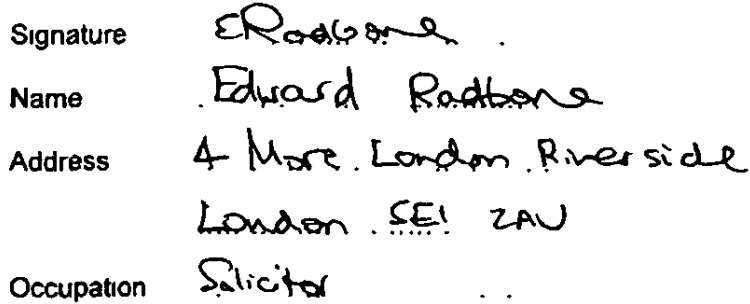 Signature ERadbone
Name Edward Radbone
Address 4 More London Riverside
London SE1 2AU
Occupation Solicitor